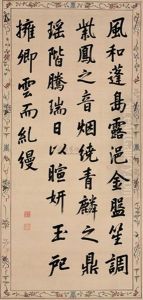 風和蓬島露浥金盤笙調
紫鳳之音烟繞青麟之鼎
瑤階騰瑞日以暄妍玉戺
擁卿雲而糺縵